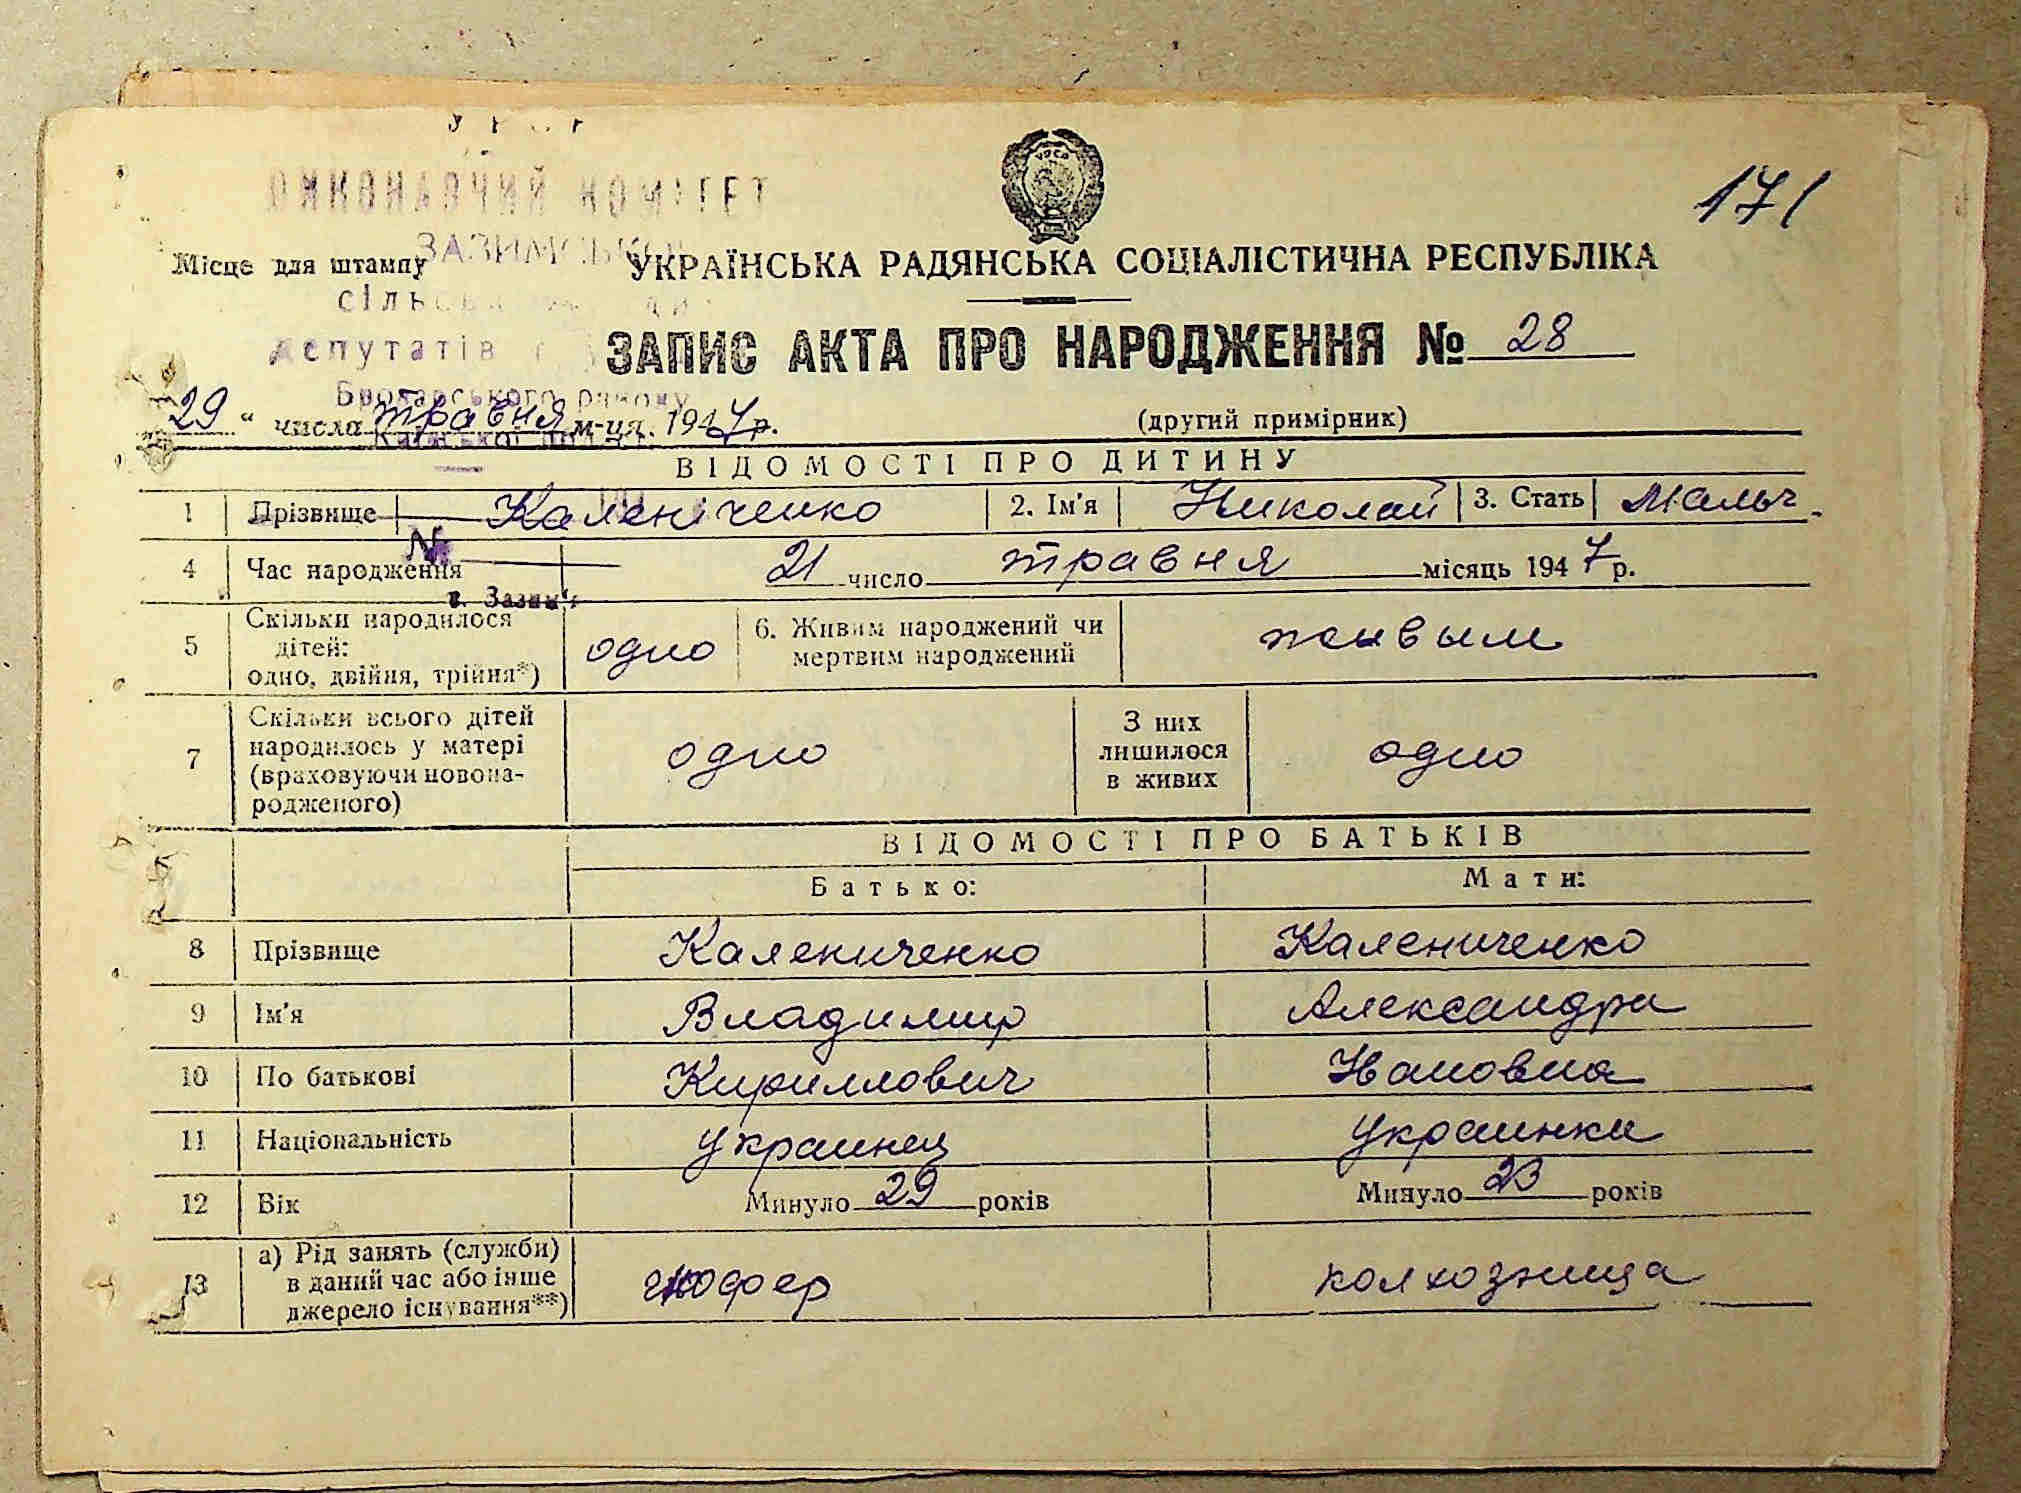 171
УРСР
ВИКОНАВЧИЙ КОМІТЕТ
ЗАЗИМСЬКОЇ
Місце для штампу
УКРАЇНСЬКА РАДЯНСЬКА СОЦІАЛІСТИЧНА РЕСПУБЛІКА
депутатів
ЗАПИС АКТА ПРО НАРОДЖЕННЯ № 28
Броварського району
29 " числа травня м-ця. 1947 р.
(другий примірник)
ВІДОМОСТІ ПРО ДИТИНУ
1 Прізвище Каленіченко 2. Ім'я Николай 3. Стать Мальч.
№
4 Час народження 21 число травня місяць 1947 р.
с. Зазим'я
5 Скільки народилося дітей: одно, двійня, трійня*) одно 6. Живим народжений чи мертвим народжений живым
7 Скільки всього дітей народилось у матері (враховуючи новонародженого) одно З них лишилося в живих одно
ВІДОМОСТІ ПРО БАТЬКІВ
Батько: Мати:
8 Прізвище Калениченко Калениченко
9 Ім'я Владимир Александра
10 По батькові Кириллович Ивановна
11 Національність Украинец Украинка
12 Вік Минуло 29 років Минуло 23 років
13 а) Рід занять (служби) в даний час або інше джерело існування**) шофер колхозница